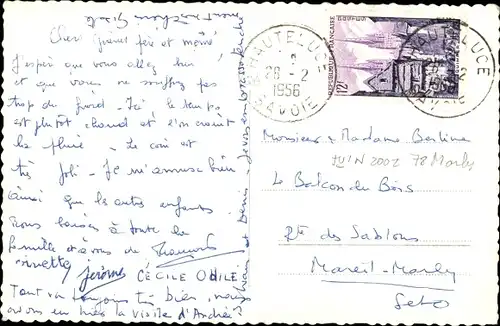 Cher grand père et mémé
J'espère que vous allez bien
et que vous ne souffrez pas
trop du froid. Ici le temps
est plutôt chaud et l'on craint
la pluie. Le coin est
très joli. Je m'amuse bien
ainsi que les autres enfants.
Bons baisers à toute la
famille et à vous de
Jérôme CÉCILE ODILE
Tout va toujours très bien, nous
avons eu hier la visite d'André ?
HAUTELUCE
28-2
1956
SAVOIE
REPUBLIQUE FRANÇAISE
12F
HAUTELUCE
1956
SAVOIE
Monsieur & Madame
JUIN 2002 78 Marly
Le Balcon du Bois
Rte des Sablons
Mareil-Marly